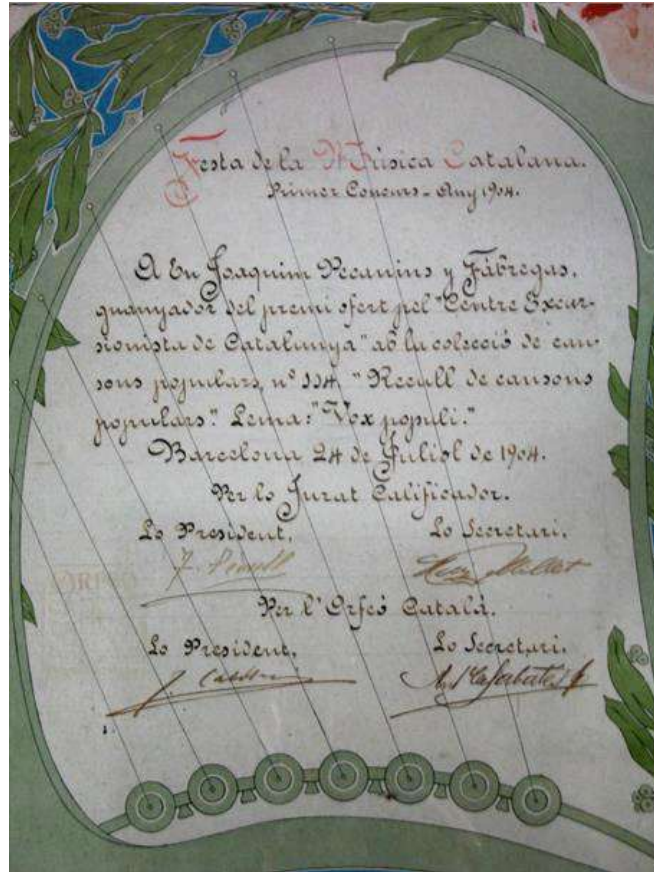 Festa de la Música Catalana.
Primer Concurs - Any 1904.
A En Joaquim Pecanins y Fábregas,
guanyador del premi ofert pel "Centre Excur-
sionista de Catalunya" ab la colecció de can-
sons populars, nº 114. "Recull de cansons
populars". Lema: "Vox populi."
Barcelona 24 de Juliol de 1904.
Per lo Jurat Calificador.
Lo President. Lo Secretari.
Millet
Per l'Orfeó Catalá.
Lo President. Lo Secretari.